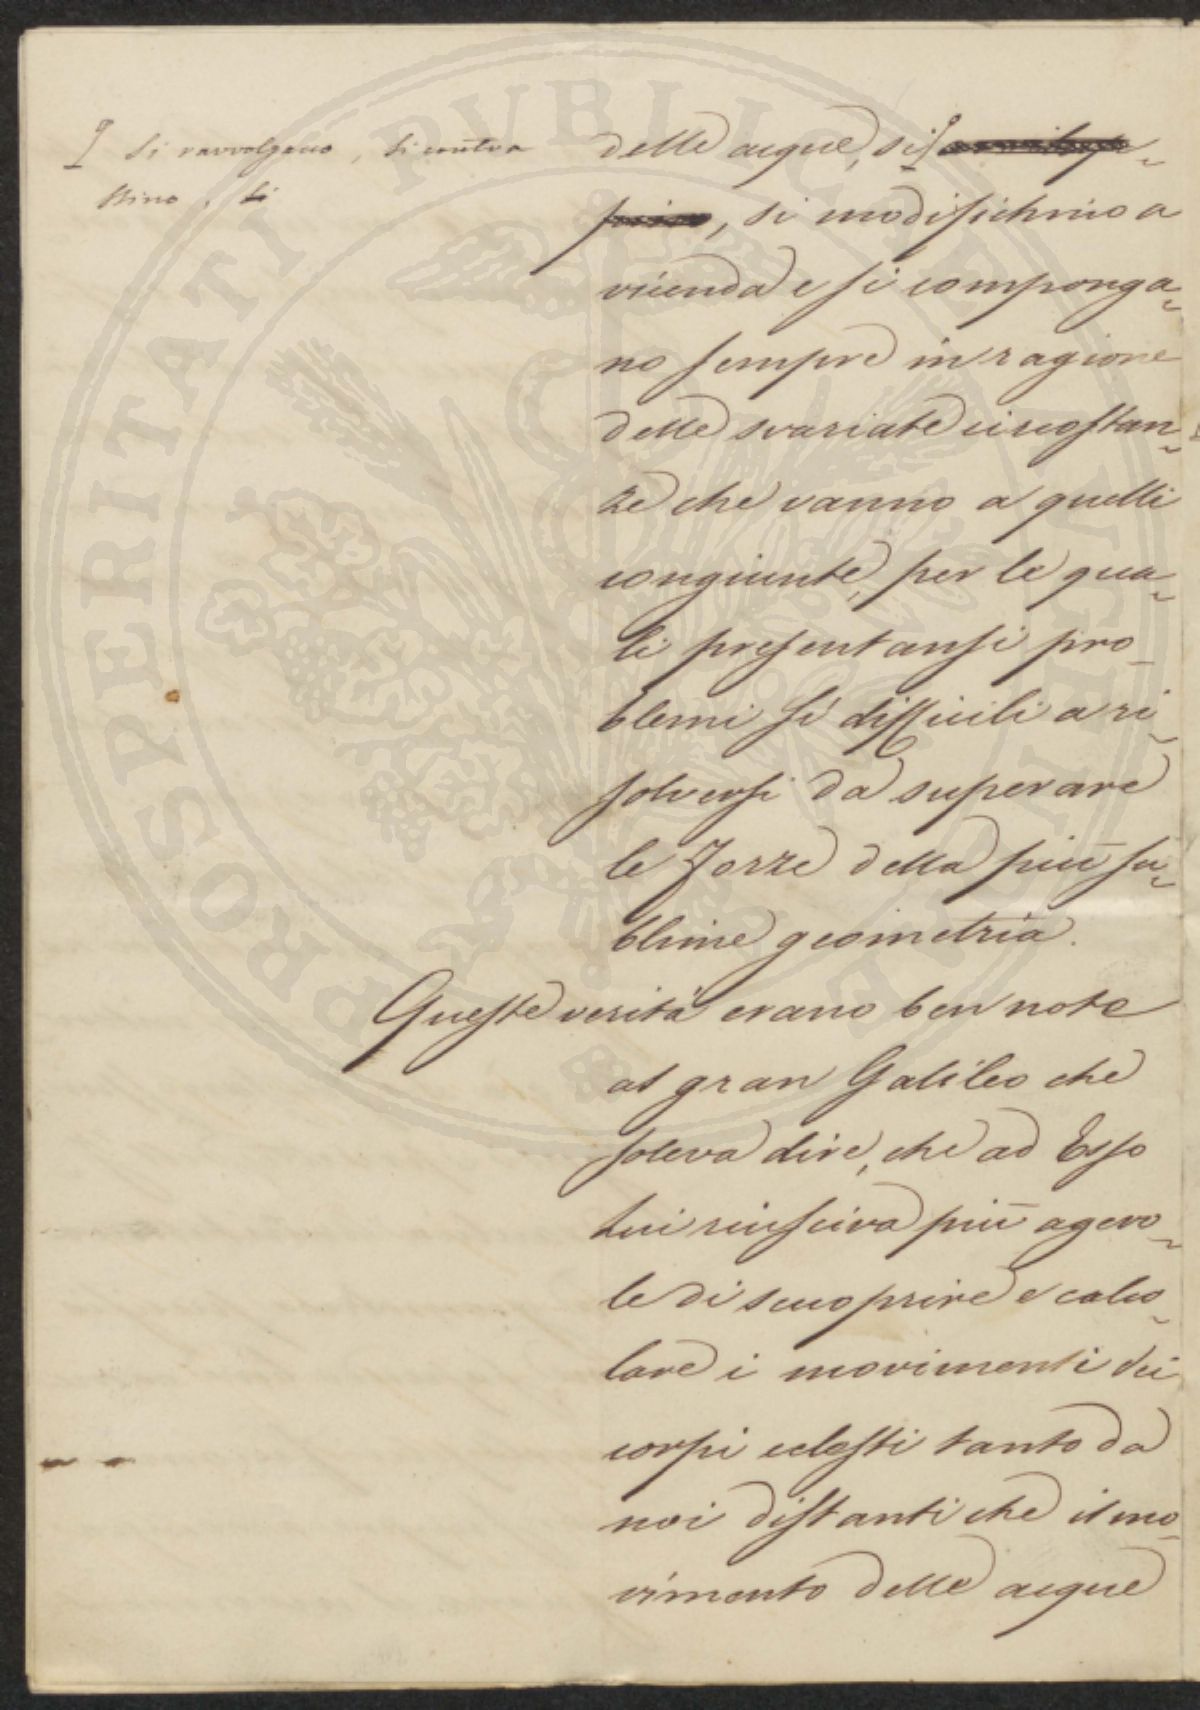 si ravvolgano, si contra
stino, si
delle acque, si
, si modifichino a
vicenda e si componga-
no sempre in ragione
delle svariate circostan-
ze che vanno a quelli
congiunte, per le qua-
li presentansi pro-
blemi sì difficili a ri-
solversi da superare
le forze della più su-
blime geometria.
Queste verità erano ben note
al gran Galileo che
soleva dire, che ad Esso
lui riusciva più agevo-
le di scuoprire e calco-
lare i movimenti dei
corpi celesti tanto da
noi distanti che il mo-
vimento delle acque
PROSPERITATI PVBLICAE AVGENDAE